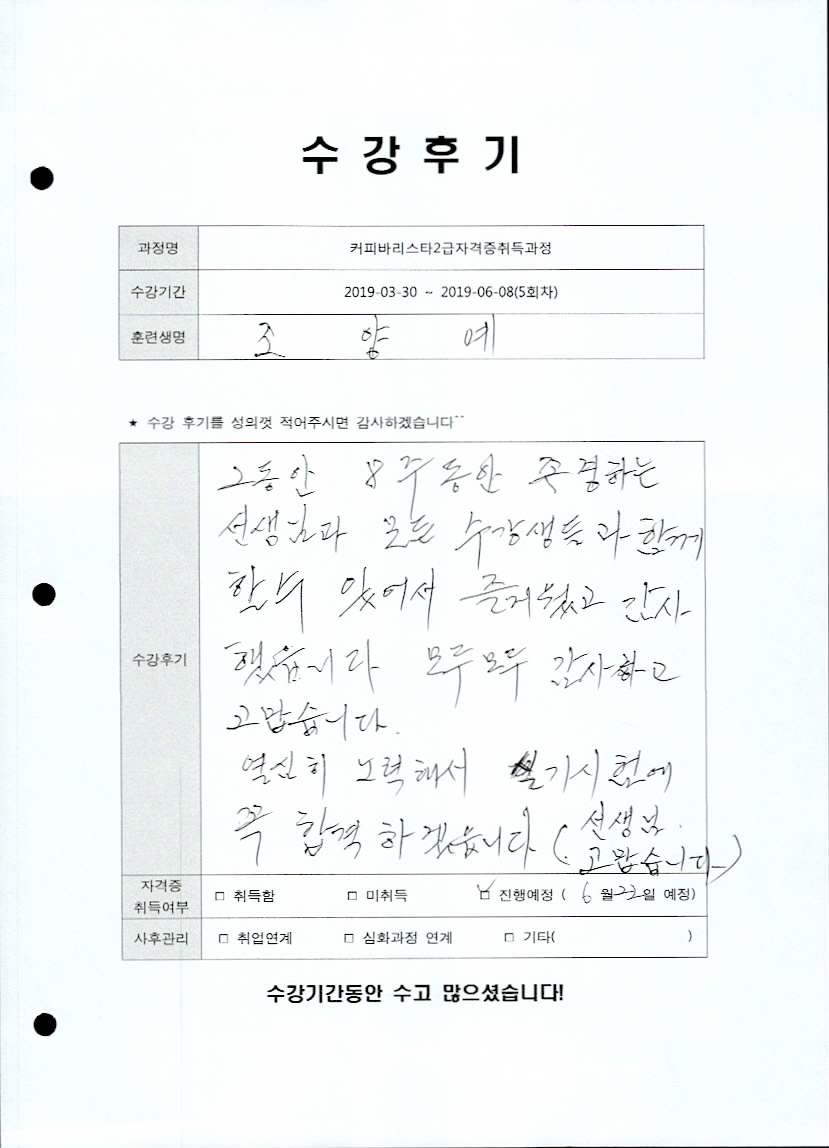 수 강 후 기
과정명 커피바리스타2급자격증취득과정
수강기간 2019-03-30 ~ 2019-06-08(5회차)
훈련생명 조 양 예
★ 수강 후기를 성의껏 적어주시면 감사하겠습니다^^
수강후기
그동안 8주동안 존경하는
선생님과 모든 수강생들과 함께
할수 있어서 즐거웠고 감사
했습니다 모두모두 감사하고
고맙습니다.
열심히 노력해서 실기시험에
꼭 합격 하겠습니다 (선생님.
고맙습니다)
자격증 취득여부 □ 취득함 □ 미취득 ☑ 진행예정 ( 6 월 22일 예정)
사후관리 □ 취업연계 □ 심화과정 연계 □ 기타( )
수강기간동안 수고 많으셨습니다!